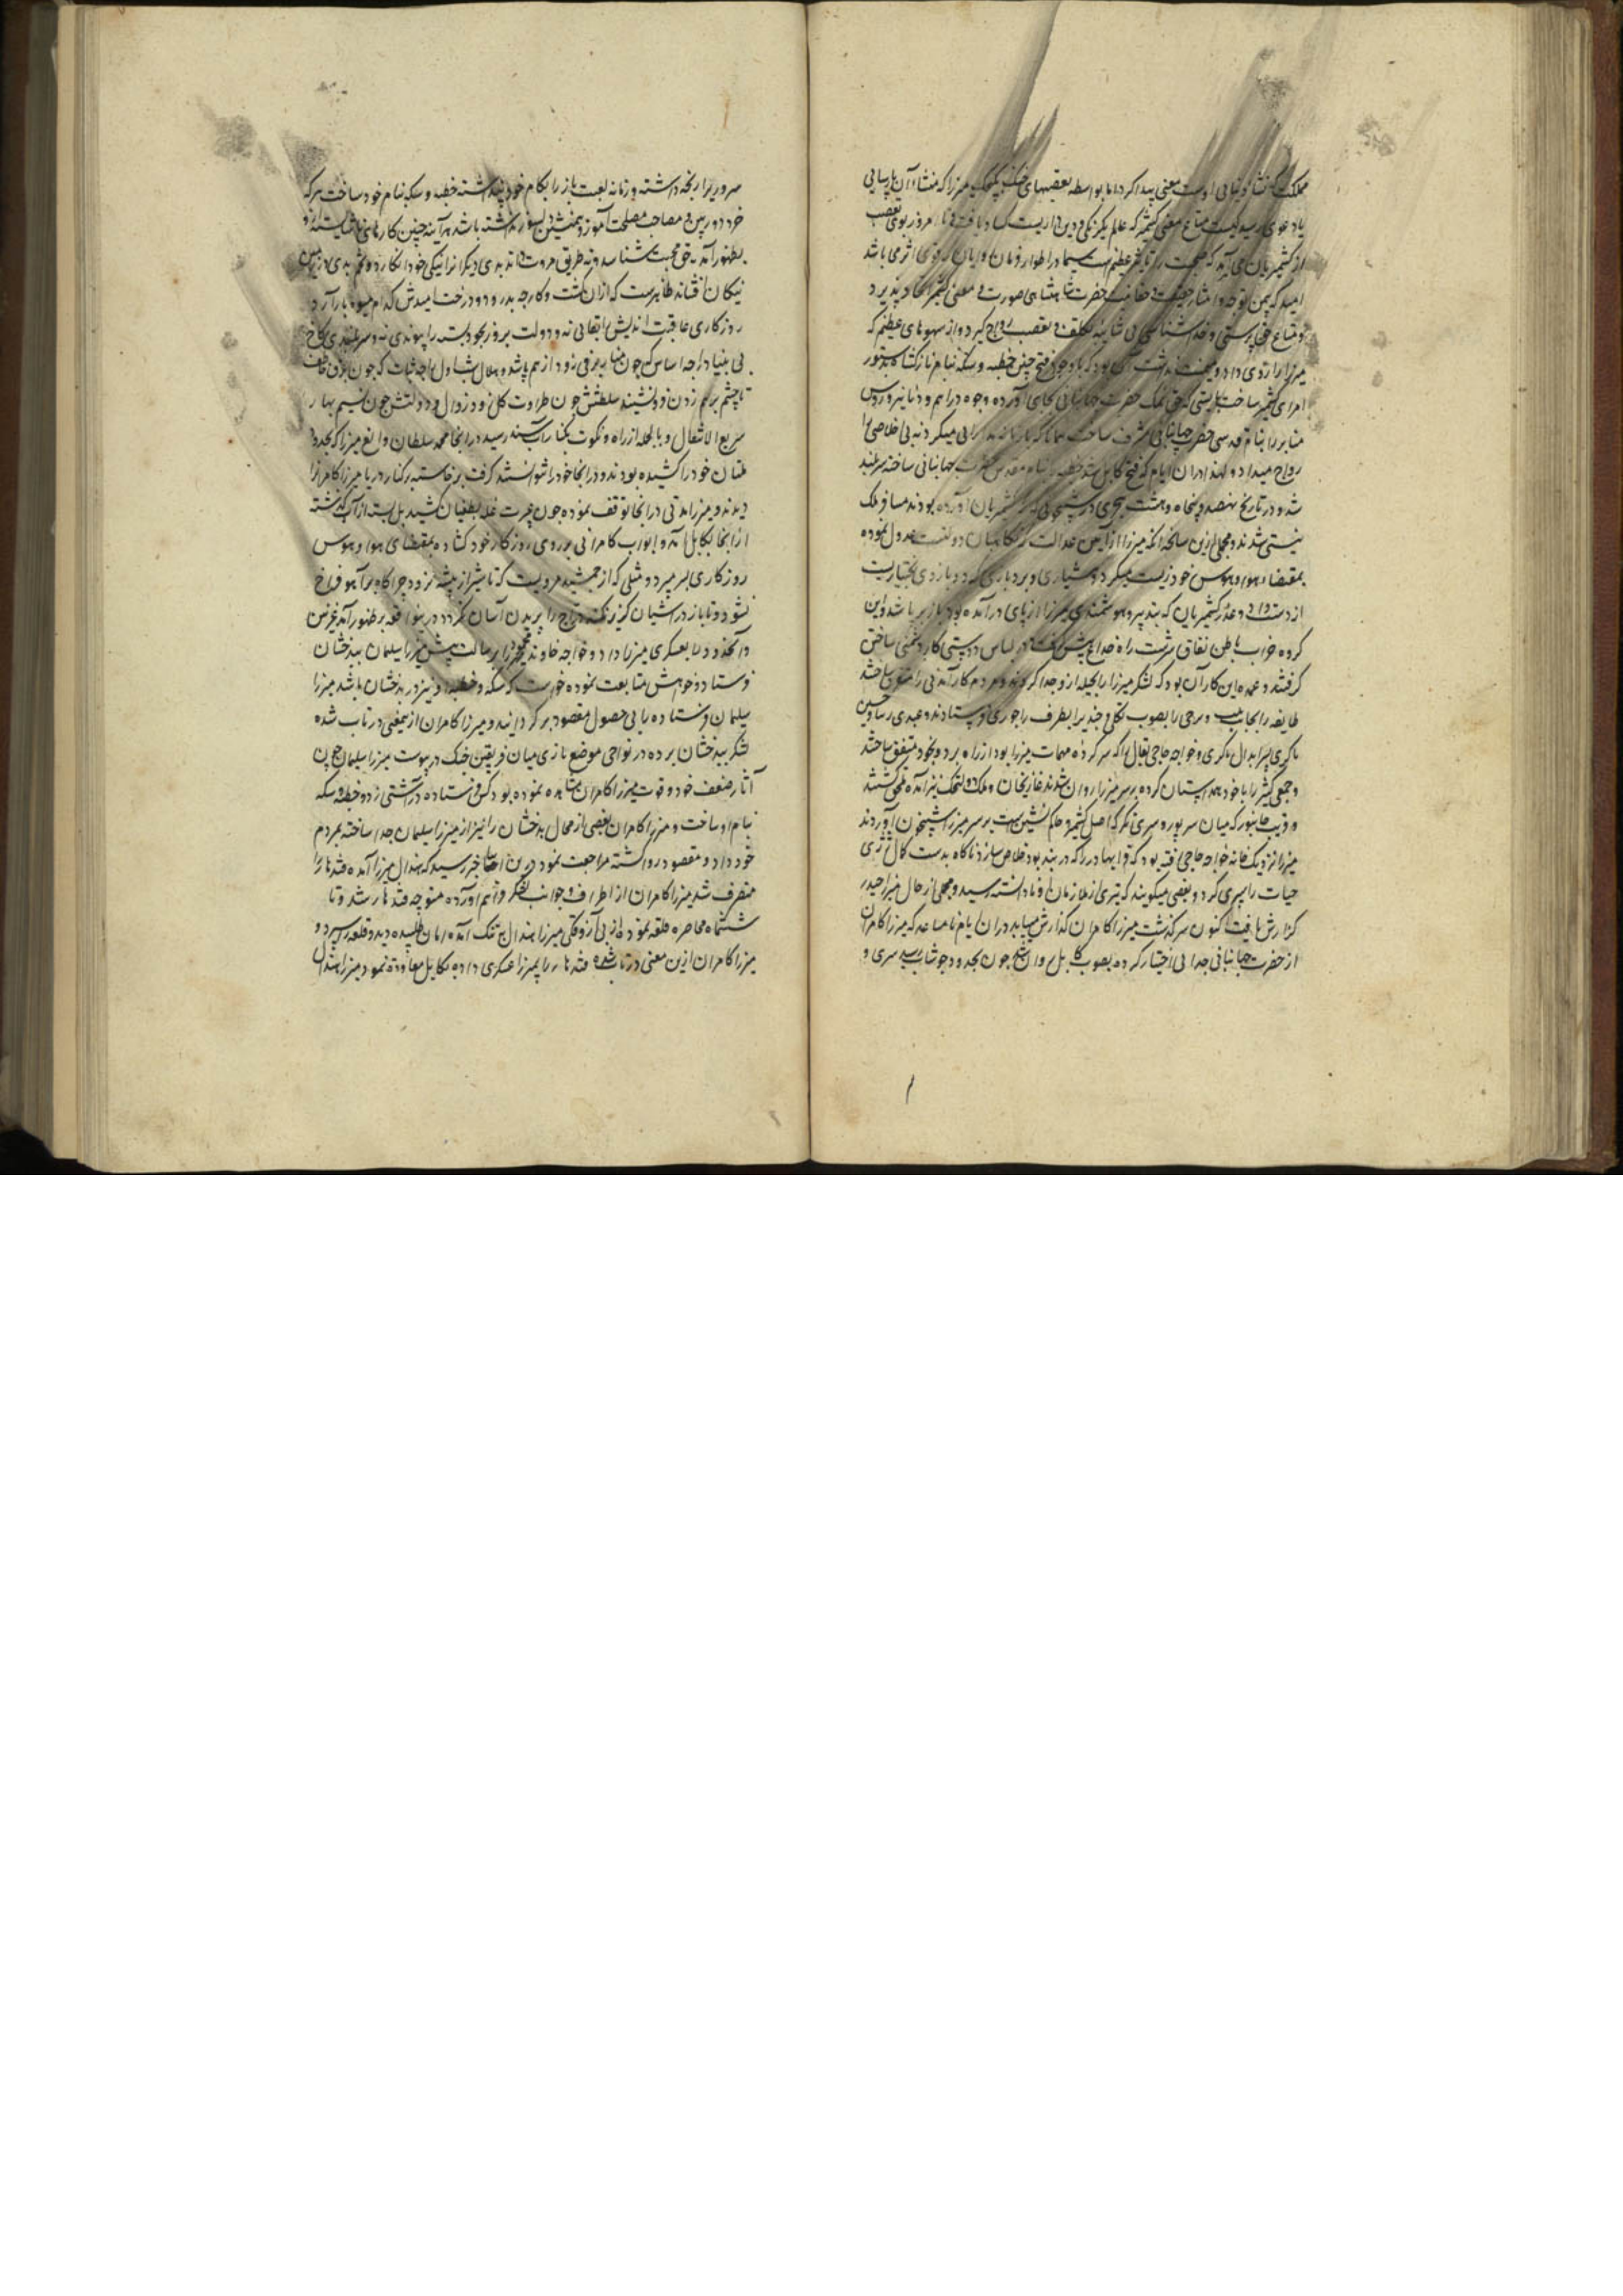 مملکت که نشاء دنیایی اوست معنی پیدا کرد اما بواسطه تعصبهای خنک میرزا که منشاء آن ناپارسایی
از کشمیریان می آید که صحبت را تاثیر عظیم است سیما در اطوار فرمان روایان که قوی اثر می باشد
امید که بیمن توجه حضرت شاهنشاهی صورت و معنی کشمیر اتحاد پذیرد
و متاع حق پرستی و خدا شناسی بی شایبه تکلف و تعصب رواج گیرد و از سهوهای عظیم که
میرزا را روی داد و میمنت نداشت آن بود که با وجود فتح چنین خطبه و سکه بنام نازکشاه بدستور
امرای کشمیر ساخت بایستی که حق نمک حضرت جهانبانی بجای آورده وجوه دراهم و دنانیر و روس
منابر را بنام قدسی حضرت جهانبانی مشرف ساخت همانا که با زمانه مدارایی میکرد نه بی اخلاصی را
رواج میداد و لهذا در ان ایام که فتح کابل شد خطبه بنام مقدس حضرت جهانبانی ساخته سربلند
شد و در تاریخ نهصد و پنجاه و هشت هجری در شبخونی که کشمیریان آورده بودند مسافر ملک
نیستی شد و مجملی ازین سانحه آنکه میرزا از آیین عدالت که نگاهبان دولتست عدول نموده
بمقتضاء هوا و هوس خود زیست میکرد و هشیاری و بردباری که دو بازوی بختیاریست
از دست داد و غدر کشمیریان که بتدبیر و هوشمندی میرزا از پای درآمده بود باز بر پا شد و این
گروه خراب باطن نفاق سرشت راه خداع پیش گرفته در لباس دوستی کار دشمنی ساختن
گرفتند و عمده این کار آن بود که لشکر میرزا را بحیله ازو جدا کردند و مردم کارآمدنی را متفرق ساختند
طایفه را بجانب تبت و برخی را بصوب پکلی و چندی را بطرف راجوری فرستادند و عیدی رینا و حسین
ماکری پسر ابدال ماکری و خواجه حاجی بقال را که سرکرده مهمات میرزا بود از راه برده بخود متفق ساختند
و جمعی کثیر را با خود همداستان کرده بر سر میرزا روان شدند غازیخان و ملک دولتچک نیز آمده ملحق شدند
و قریب خانپور که میان هیرپور و سری نگر که اصل کشمیر و حاکم نشین است بر سر میرزا شبیخون آوردند
میرزا نزدیک خانه خواجه حاجی رفته بود که قرا بهادر را که در بند بود خلاص سازد ناگاه بدست کمال زی
حیات را سپری کرد و بعضی میگویند که تیری از ملازمان او نادانسته رسید و مجملی از حال میرزا حیدر
گزارش یافت اکنون سرگذشت میرزا کامران گذارش میابد در ان ایام نامساعد که میرزا کامران
از حضرت جهانبانی جدایی اختیار کرده بصوب کابل روان شد چون بحدود خوشاب رسید سری و
سروری را رنجه داشته و زمانه لعبت باز را بکام خود پنداشته خطبه و سکه بنام خود ساخت هر که
خرد دوربین و مصاحب مصلحت آموز و همنشین دلسوز نداشته باشد هر آینه چنین کارهای ناشایسته ازو
بظهور آید نه حق محبت شناسد و نه طریق مروت داند بدی دیگرانرا نیکی خود انگارد و تخم بدی در زمین
نیکان افشاند ظاهرست که ازان کشت و کار چه بدرود و درخت امیدش کدام میوه بار آرد
روزکاری عاقبت اندیش را بقایی نه و دولت بروز بخود بسته را پیوندی نه و سربلندی کاخ
بی بنیاد را چه اساس که چون بنای برفی زود از هم پاشد و هلال شب اول را چه ثبات که چون برق خاطف
تا چشم برهم زدن فرو نشیند سلطنتش چون طراوت گل زود زوال و دولتش چون نسیم بهار
سریع الانتقال و بالجمله از راه دنکوت بکنار آب سند رسید در انجا محمد سلطان و الغ میرزا که بحدود
ملتان خود را کشیده بودند و در انجا خود را نتوانستند گرفت برخاسته بر کنار دریا میرزا کامران را
دیدند و میرزا مدتی در انجا توقف نموده چون عسرت غله بطغیان کشید پل بسته از آب گذشته
از انجا بکابل آمد و ابواب کامرانی بر روی روزگار خود گشاده بمقتضای هوا و هوس
روزکاری بسر میبرد و مثلی که از جمشید مرویست که تا شیر از بیشه نرود چراگاه بر آهو فراخ
نشود و تا باز در آشیان گزیر نکند دراج را پریدن آسان نگردد درینواقعه بظهور آمد غزنین
و آنحدود را بعسکری میرزا داد و خواجه خاوند محمود را برسالت پیش میرزا سلیمان ببدخشان
فرستاد و خواهش متابعت نموده خواست که سکه و خطبه او نیز در بدخشان باشد میرزا
سلیمان فرستاده را بی حصول مقصود برگردانید و میرزا کامران ازینمعنی در تاب شده
لشکر ببدخشان برده در نواحی موضع باری میان فریقین جنگ در پیوست میرزا سلیمان چون
آثار ضعف خود و قوت میرزا کامران مشاهده نموده بود کس فرستاده در آشتی زد و خطبه و سکه
بنام او ساخت و میرزا کامران بعضی از محال بدخشان را نیز از میرزا سلیمان جدا ساخته بمردم
خود داد و مقصود روا گشته مراجعت نمود درین اثنا خبر رسید که هندال میرزا آمده قندهار را
متصرف شد میرزا کامران از اطراف و جوانب لشکر فراهم آورده متوجه قندهار شد و تا
ششماه محاصره قلعه نموده از بی آزوقگی میرزا هندال بتنگ آمده امان طلبیده دید و قلعه سپرد و
میرزا کامران ازین معنی در تاب شده قندهار را بمیرزا عسکری داده بکابل معاودت نمود میرزا هندال